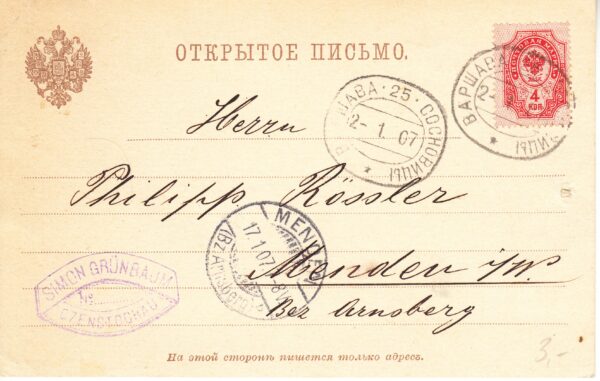 ОТКРЫТОЕ ПИСЬМО.
ПОЧТОВАЯ МАРКА
4
КОП.
ВАРШАВА
ВИЦЫ
ВАРШАВА · 25 · СОСНОВИЦЫ
2- 1 07
Herrn
Philipp Rössler
MENDEN
17.1.07
(BZ. Arnsberg)
Menden i/W.
Bez Arnsberg
SIMON GRÜNBAUM
CZENSTOCHAU
На этой сторонѣ пишется только адресъ.
3,-